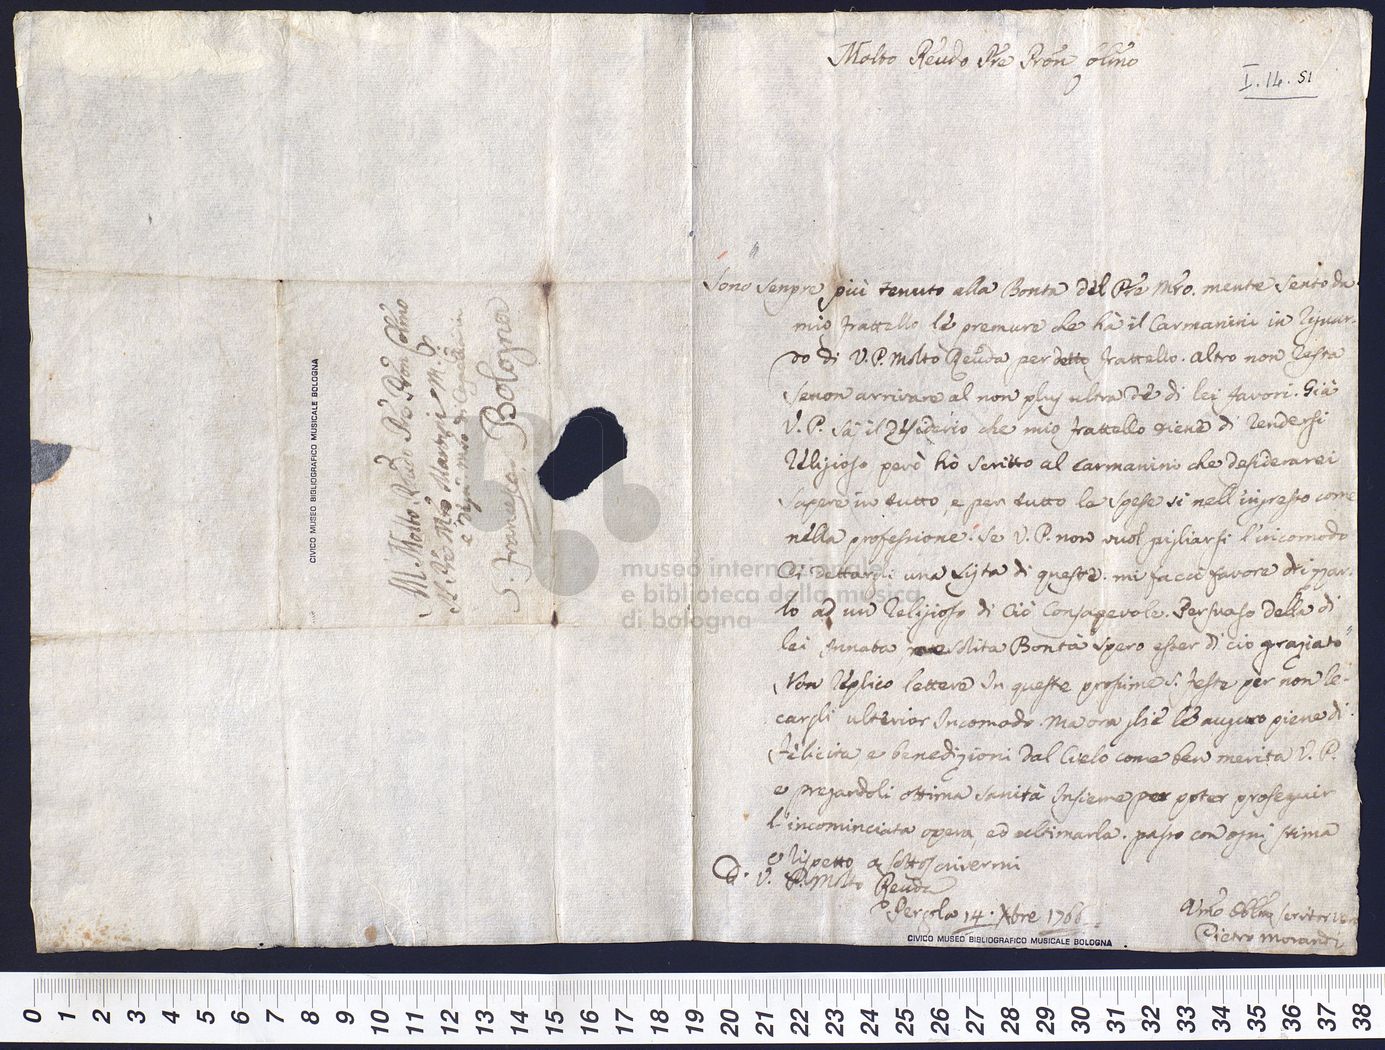 Molto Reũdo Prẽ Prõn Olmo
I. 14. 51
Sono senpre piú tenuto alla Bonta del Prẽ Mrõ. mente sento da
mio frattello le premure che hà il Carmanini in riguar-
do di V. P. Molto Reũda per detto frattello. altro non resta
senon arrivare al non plus ultra de di lei favori. Già
V. P. sà il desiderio che mio frattello tiene di rendersi
religioso però hò scritto al Carmanini che desiderarei
sapere in tutto, e per tutto le spese si nell'ingresso come
nella professione. Se V. P. non vuol pigliarsi l'incomodo
di dettargli una lista di queste. mi facci favore di par-
lo ad un religioso di ciò consapevole. Persuaso della di
lei innata, solita Bontà spero esser di ciò graziato
Non replico lettere in queste prosime S. feste per non re-
cargli ulterior incomodo. ma ora glie le auguro piene di
felicita e benedizioni dal Cielo come ben merita V. P.
e pregardoli ottima sanità insieme per poter proseguir
l'incominciata opera, ed ultimarla. passo con ogni stima
e rispetto a sottoscrivermi
D. V. P. Molto Reũda
Pergola 14. Xbre 1766.
Umõ Obblm̃o servitor vero
Pietro Morandi
CIVICO MUSEO BIBLIOGRAFICO MUSICALE BOLOGNA
CIVICO MUSEO BIBLIOGRAFICO MUSICALE BOLOGNA
Al Molto Reũdo Prẽ Prõn Colmo
Il Prẽ Mrõ Martini M. C.
e Degnmo di Cappella in
S. Francesco Bologna
museo internazionale
e biblioteca della musica
di bologna
0 1 2 3 4 5 6 7 8 9 10 11 12 13 14 15 16 17 18 19 20 21 22 23 24 25 26 27 28 29 30 31 32 33 34 35 36 37 38